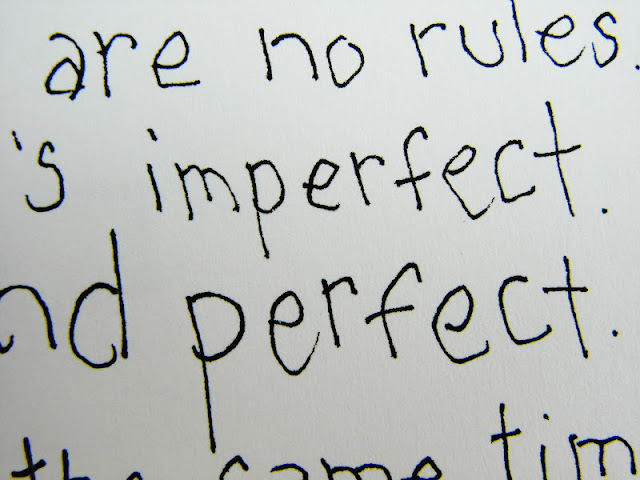 are no rules.
's imperfect.
nd perfect.
the same tim